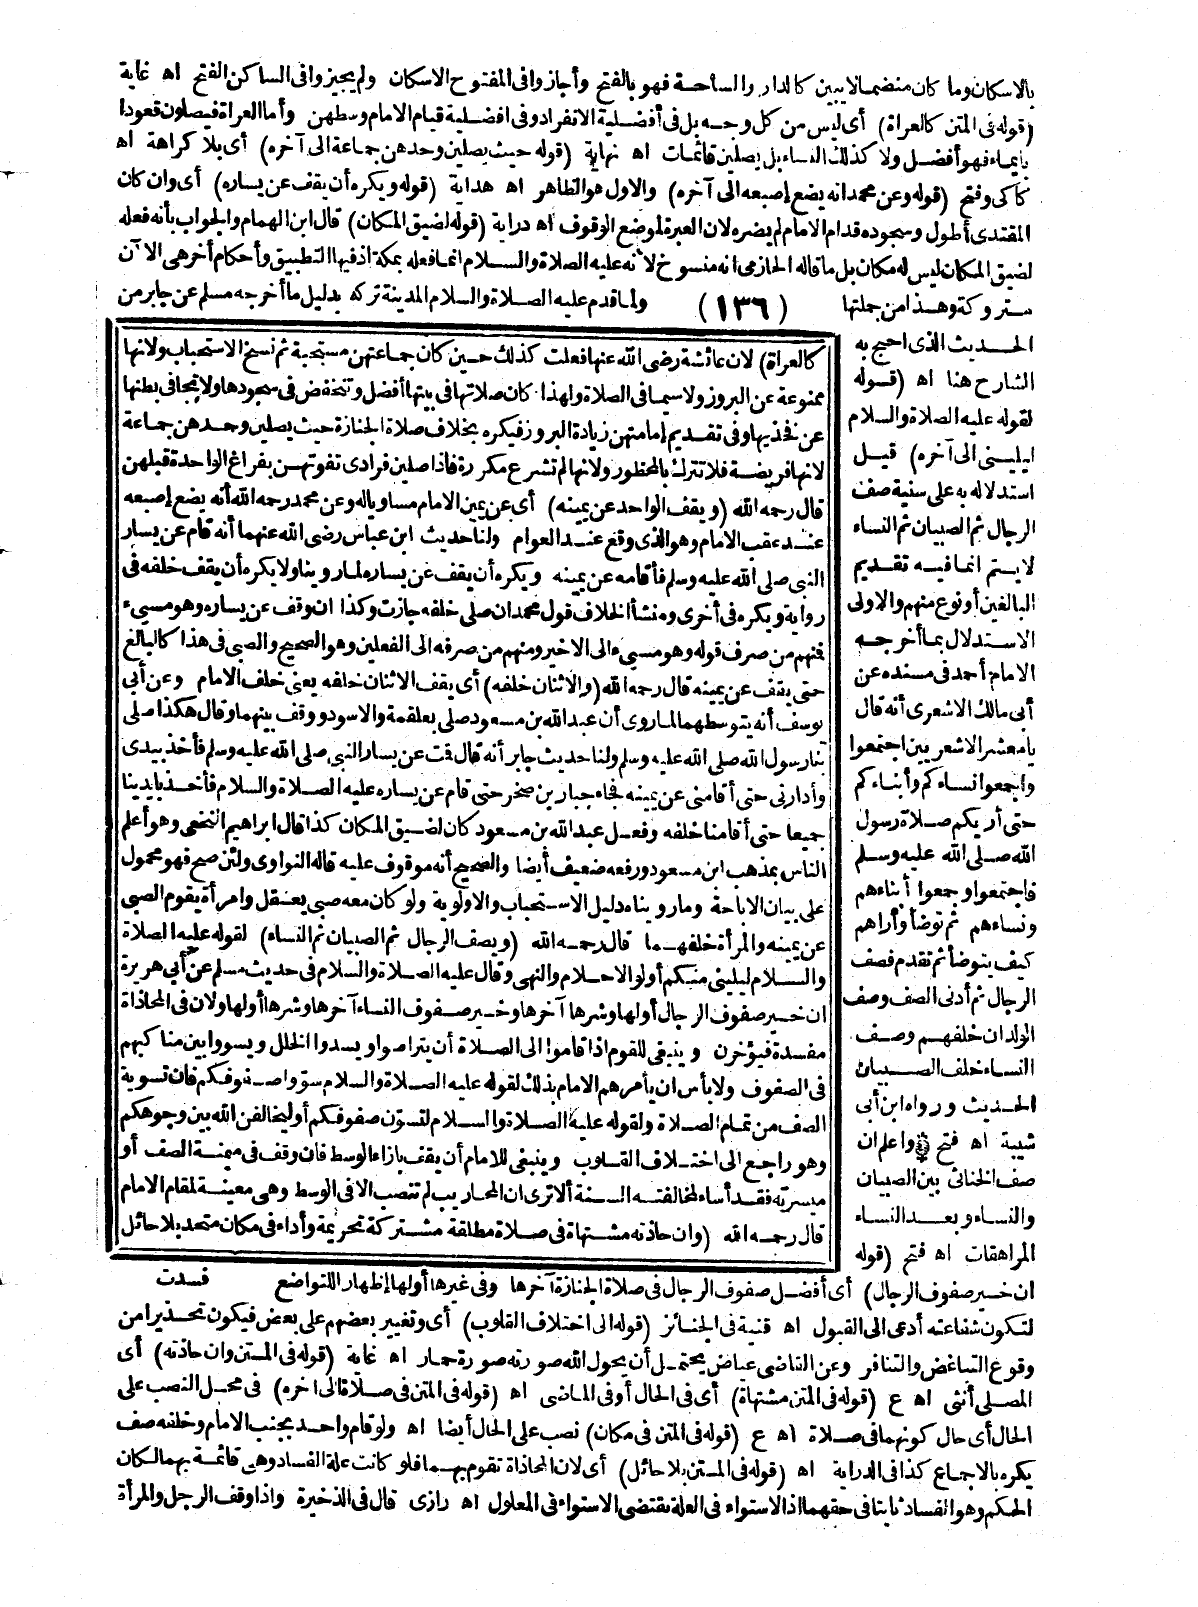 بالاسكان وما كان منضما لا يبين كالدار والساحة فهو بالفتح وأجازوا فى المفتوح الاسكان ولم يجيزوا فى الساكن الفتح اه غاية
(قوله فى المتن كالعراة) أى ليس من كل وجه بل فى أفضلية الانفراد وفى افضلية قيام الامام وسطهن وأما العراة فيصلون قعودا
بايماء فهو أفضل ولا كذلك النساء بل يصلين قائمات اه نهاية (قوله حيث يصلين وحدهن جماعة الى آخره) أى بلا كراهة اه
كاكى وفتح (قوله وعن محمد انه يضع إصبعه الى آخره) والاول هو الظاهر اه هداية (قوله ويكره أن يقف عن يساره) أى وان كان
المقتدى أطول وسجوده قدام الامام لم يضره لان العبرة لموضع الوقوف اه دراية (قوله لضيق المكان) قال ابن الهمام والجواب بأنه فعله
لضيق المكان ليس له مكان بل ما قاله الحازمى انه منسوخ لأنه عليه الصلاة والسلام انما فعله بمكة اذ فيها التطبيق وأحكام أخر هى الآن
متروكة وهذا من جملتها (١٣٦) ولما قدم عليه الصلاة والسلام المدينة تركه بدليل ما أخرجه مسلم عن جابر من
الحديث الذى احتج به
الشارح هنا اه (قوله
لقوله عليه الصلاة والسلام
ليلينى الى آخره) قيل
استدلاله به على سنية صف
الرجال ثم الصبيان ثم النساء
لا يتم انما فيه تقديم
البالغين أو نوع منهم والاولى
الاستدلال بما أخرجه
الامام أحمد فى مسنده عن
أبى مالك الاشعرى أنه قال
يا معشر الاشعريين اجتمعوا
واجمعوا نساءكم وأبناءكم
حتى أريكم صلاة رسول
الله صلى الله عليه وسلم
فاجتمعوا وجمعوا أبناءهم
ونساءهم ثم توضأ وأراهم
كيف يتوضأ ثم تقدم فصف
الرجال ثم أدنى الصف وصف
الولدان خلفهم وصف
النساء خلف الصبيان
الحديث ورواه ابن أبى
شيبة اه فتح واعلم ان
صف الخناثى بين الصبيان
والنساء وبعد النساء
المراهقات اه فتح (قوله
كالعراة) لان عائشة رضى الله عنها فعلت كذلك حين كان جماعتهن مستحبة ثم نسخ الاستحباب ولانها
ممنوعة عن البروز ولا سيما فى الصلاة ولهذا كان صلاتها فى بيتها أفضل وتنخفض فى سجودها ولا تجافى بطنها
عن فخذيها وفى تقديم إمامتهن زيادة البروز فيكره بخلاف صلاة الجنازة حيث يصلين وحدهن جماعة
لانها فريضة فلا تترك بالمحظور ولانها لم تشرع مكررة فاذا صلين فرادى تفوتهن بفراغ الواحدة قبلهن
قال رحمه الله (ويقف الواحد عن يمينه) أى عن يمين الامام مساويا له وعن محمد رحمه الله أنه يضع إصبعه
عند عقب الامام وهو الذى وقع عند العوام ولنا حديث ابن عباس رضى الله عنهما أنه قام عن يسار
النبى صلى الله عليه وسلم فأقامه عن يمينه ويكره أن يقف عن يساره لما روينا ولا يكره أن يقف خلفه فى
رواية ويكره فى أخرى ومنشأ الخلاف قول محمد ان صلى خلفه جازت وكذا ان وقف عن يساره وهو مسىء
فمنهم من صرف قوله وهو مسىء الى الاخير ومنهم من صرفه الى الفعلين وهو الصحيح والصبى فى هذا كالبالغ
حتى يقف عن يمينه قال رحمه الله (والاثنان خلفه) أى يقف الاثنان خلفه يعنى خلف الامام وعن أبى
يوسف أنه يتوسطهما لما روى أن عبد الله بن مسعود صلى بعلقمة والاسود ووقف بينهما وقال هكذا صلى
بنا رسول الله صلى الله عليه وسلم ولنا حديث جابر أنه قال قمت عن يسار النبى صلى الله عليه وسلم فأخذ بيدى
وأدارنى حتى أقامنى عن يمينه فجاء جبار بن صخر حتى قام عن يساره عليه الصلاة والسلام فأخذ بايدينا
جميعا حتى أقامنا خلفه وفعل عبد الله بن مسعود كان لضيق المكان كذا قال ابراهيم النخعى وهو أعلم
الناس بمذهب ابن مسعود ورفعه ضعيف أيضا والصحيح أنه موقوف عليه قاله النواوى ولئن صح فهو محمول
على بيان الاباحة وما رويناه دليل الاستحباب والاولوية ولو كان معه صبى يعقل وامرأة يقوم الصبى
عن يمينه والمرأة خلفهما قال رحمه الله (ويصف الرجال ثم الصبيان ثم النساء) لقوله عليه الصلاة
والسلام ليلينى منكم أولو الاحلام والنهى وقال عليه الصلاة والسلام فى حديث مسلم عن أبى هريرة
ان خير صفوف الرجال أولها وشرها آخرها وخير صفوف النساء آخرها وشرها أولها ولان فى المحاذاة
مفسدة فيؤخرن وينبغى للقوم اذا قاموا الى الصلاة أن يتراصوا ويسدوا الخلل ويسووا بين مناكبهم
فى الصفوف ولا بأس ان يأمرهم الامام بذلك لقوله عليه الصلاة والسلام سووا صفوفكم فان تسوية
الصف من تمام الصلاة ولقوله عليه الصلاة والسلام لتسون صفوفكم أو ليخالفن الله بين وجوهكم
وهو راجع الى اختلاف القلوب وينبغى للامام أن يقف بازاء الوسط فان وقف فى ميمنة الصف أو
ميسرته فقد أساء لمخالفته السنة ألا ترى ان المحاريب لم تنصب الا فى الوسط وهى معينة لمقام الامام
قال رحمه الله (وان حاذته مشتهاة فى صلاة مطلقة مشتركة تحريمة وأداء فى مكان متحد بلا حائل
ان خير صفوف الرجال) أى أفضل صفوف الرجال فى صلاة الجنازة آخرها وفى غيرها أولها إظهارا للتواضع فسدت
لتكون شفاعته أدعى الى القبول اه قنية فى الجنائز (قوله الى اختلاف القلوب) أى وتغيير بعضهم على بعض فيكون تحذيرا من
وقوع التباغض والتنافر وعن القاضى عياض يحتمل أن يحول الله صورته صورة حمار اه غاية (قوله فى المتن وان حاذته) أى
المصلى أنثى اه ع (قوله فى المتن مشتهاة) أى فى الحال أو فى الماضى اه (قوله فى المتن فى صلاة الى آخره) فى محل النصب على
الحال أى حال كونهما فى صلاة اه ع (قوله فى المتن فى مكان) نصب على الحال أيضا اه ولو قام واحد بجنب الامام وخلفه صف
يكره بالاجماع كذا فى الدراية اه (قوله فى المتن بلا حائل) أى لان المحاذاة تقوم بهما فلو كانت علة الفساد وهى قائمة بهما لكان
الحكم وهو الفساد ثابتا فى حقهما اذ الاستواء فى العلة يقتضى الاستواء فى المعلول اه رازى قال فى الذخيرة واذا وقف الرجل والمرأة